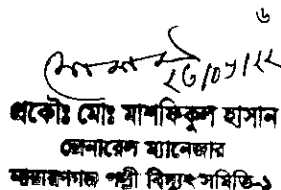 ৬
২৫/০৭/২২
প্রকৌঃ মোঃ মাশফিকুল হাসান
জেনারেল ম্যানেজার
নারায়ণগঞ্জ পল্লী বিদ্যুৎ সমিতি-১